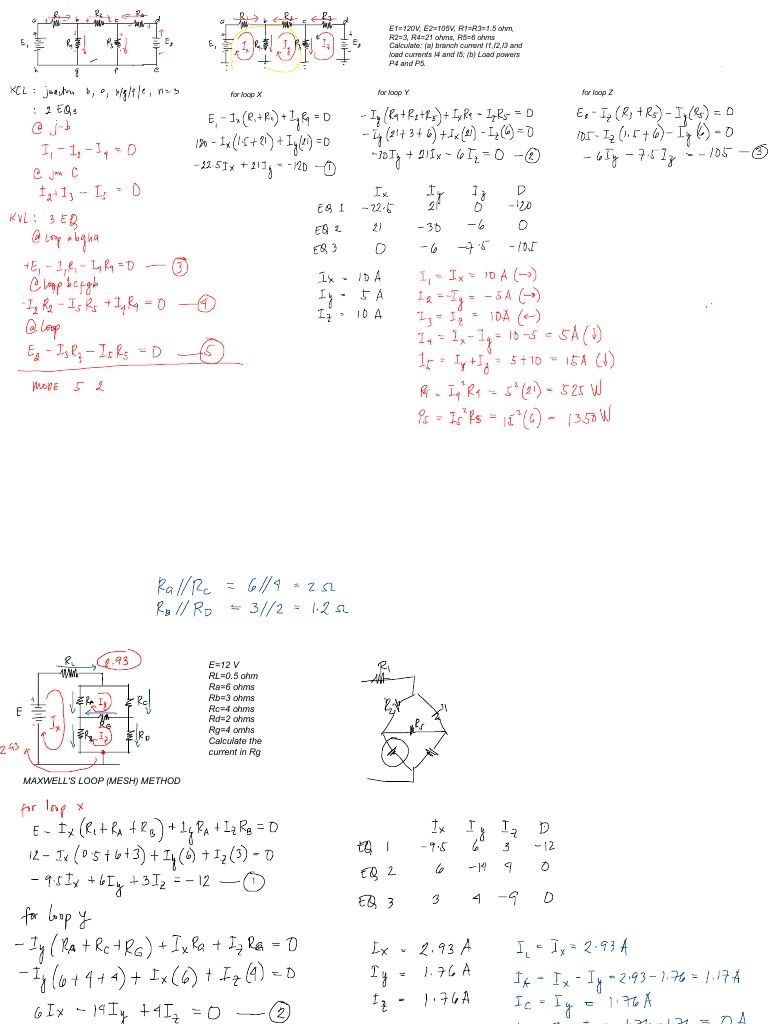 E1=120V, E2=105V, R1=R3=1.5 ohm,
R2=3, R4=21 ohms, R5=6 ohms
Calculate: (a) branch current I1,I2,I3 and
load currents I4 and I5; (b) Load powers
P4 and P5.
KCL: junction b, c, h/g/f/e, n=3
: 2 EQs
@ j-b
I1 - I2 - I4 = 0
@ jun C
I2 + I3 - I5 = 0
KVL: 3 EQs
@ loop abgha
+E1 - I1R1 - I4R4 = 0 — 3
@ loop bcfgb
-I2R2 - I5R5 + I4R4 = 0 — 4
@ loop
E2 - I3R3 - I5R5 = 0 — 5
MODE 5 2
for loop X
E1 - Ix(R1+R4) + IyR4 = 0
120 - Ix(1.5+21) + Iy(21) = 0
-22.5Ix + 21Iy = -120 — 1
for loop Y
-Iy(R4+R2+R5) + IxR4 - IzR5 = 0
-Iy(21+3+6) + Ix(21) - Iz(6) = 0
-30Iy + 21Ix - 6Iz = 0 — 2
for loop Z
E2 - Iz(R3+R5) - Iy(R5) = 0
105 - Iz(1.5+6) - Iy(6) = 0
-6Iy - 7.5Iz = -105 — 3
Ix Iy Iz D
EQ 1 -22.5 21 0 -120
EQ 2 21 -30 -6 0
EQ 3 0 -6 -7.5 -105
Ix = 10 A
Iy = 5 A
Iz = 10 A
I1 = Ix = 10 A (→)
I2 = -Iy = -5A (→)
I3 = Iz = 10A (←)
I4 = Ix - Iy = 10 - 5 = 5A (↓)
I5 = Iy + Iz = 5 + 10 = 15A (↓)
P4 = I4²R4 = 5²(21) = 525 W
P5 = I5²R5 = 15²(6) = 1350 W
Ra//Rc = 6//4 = 2 Ω
RB//RD = 3//2 = 1.2 Ω
RL 2.93
E Ix RA Iy RC RG RB Iz RD
2.93
E=12 V
RL=0.5 ohm
Ra=6 ohms
Rb=3 ohms
Rc=4 ohms
Rd=2 ohms
Rg=4 omhs
Calculate the
current in Rg
R1
R2
R5
MAXWELL'S LOOP (MESH) METHOD
for loop x
E - Ix(RL+RA+RB) + IyRA + IzRB = 0
12 - Ix(0.5+6+3) + Iy(6) + Iz(3) = 0
-9.5Ix + 6Iy + 3Iz = -12 — 1
for loop y
-Iy(RA+RC+RG) + IxRa + IzRG = 0
-Iy(6+4+4) + Ix(6) + Iz(4) = 0
6Ix - 14Iy + 4Iz = 0 — 2
Ix Iy Iz D
EQ 1 -9.5 6 3 -12
EQ 2 6 -14 4 0
EQ 3 3 4 -9 0
Ix = 2.93 A
Iy = 1.76 A
Iz = 1.76A
IL = Ix = 2.93 A
IA = Ix - Iy = 2.93 - 1.76 = 1.17A
IC = Iy = 1.76A